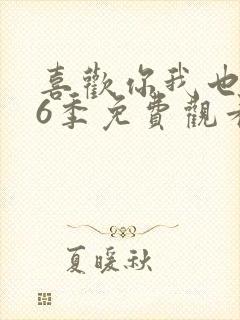 喜歡你我也
6季免費觀看
夏暖秋